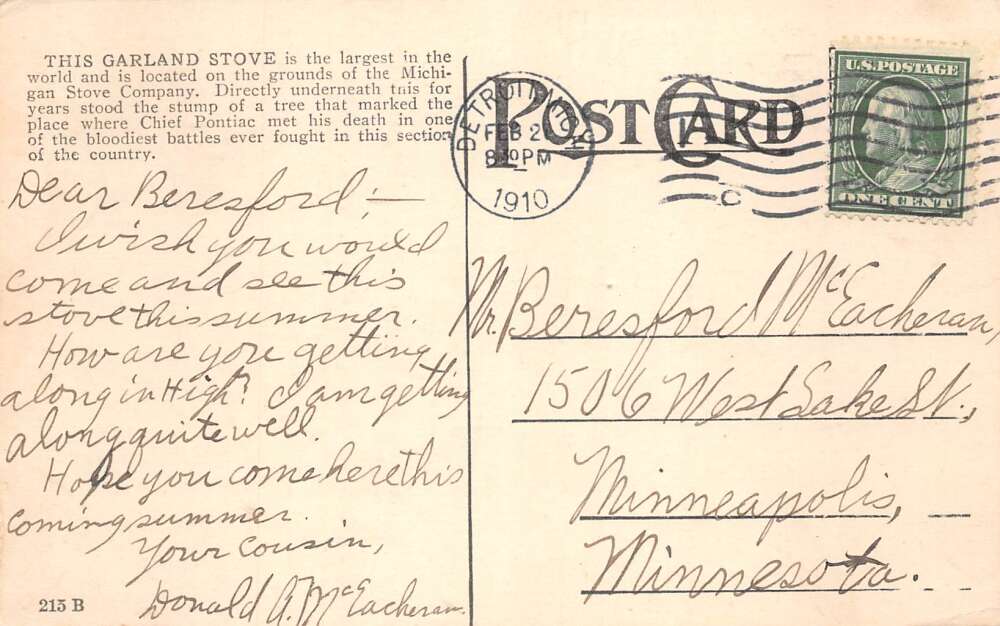 THIS GARLAND STOVE is the largest in the
world and is located on the grounds of the Michi-
gan Stove Company. Directly underneath this for
years stood the stump of a tree that marked the
place where Chief Pontiac met his death in one
of the bloodiest battles ever fought in this section
of the country.
POST CARD
DETROIT, MICH.
FEB 2
8 30 PM
1910
U.S. POSTAGE
ONE CENT
Dear Beresford;—
I wish you would
come and see this
stove this summer.
How are you getting
along in High? I am getting
along quite well.
Hope you come here this
coming summer.
Your cousin,
Donald A. McEacheran.
213 B
Mr. Beresford McEacheran,
1506 West Lake St.,
Minneapolis,
Minnesota.